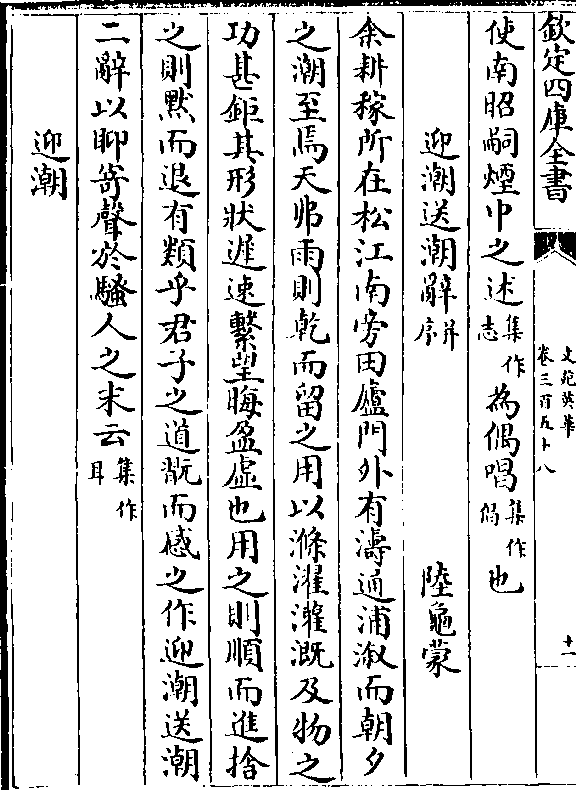 欽定四庫全書
文苑英華
卷三百五十八
十一
使南昭嗣煙中之述集作志為偶唱集作倡也
迎潮送潮辭并序
陸龜蒙
余耕稼所在松江南旁田廬門外有濤通浦溆而朝夕
之潮至焉天弗雨則乾而留之用以滌濯灌溉及物之
功甚鉅其形狀遲速繫望晦盈虛也用之則順而進捨
之則默而退有類乎君子之道翫而感之作迎潮送潮
二辭以聊寄聲於騷人之末云集作耳
迎潮